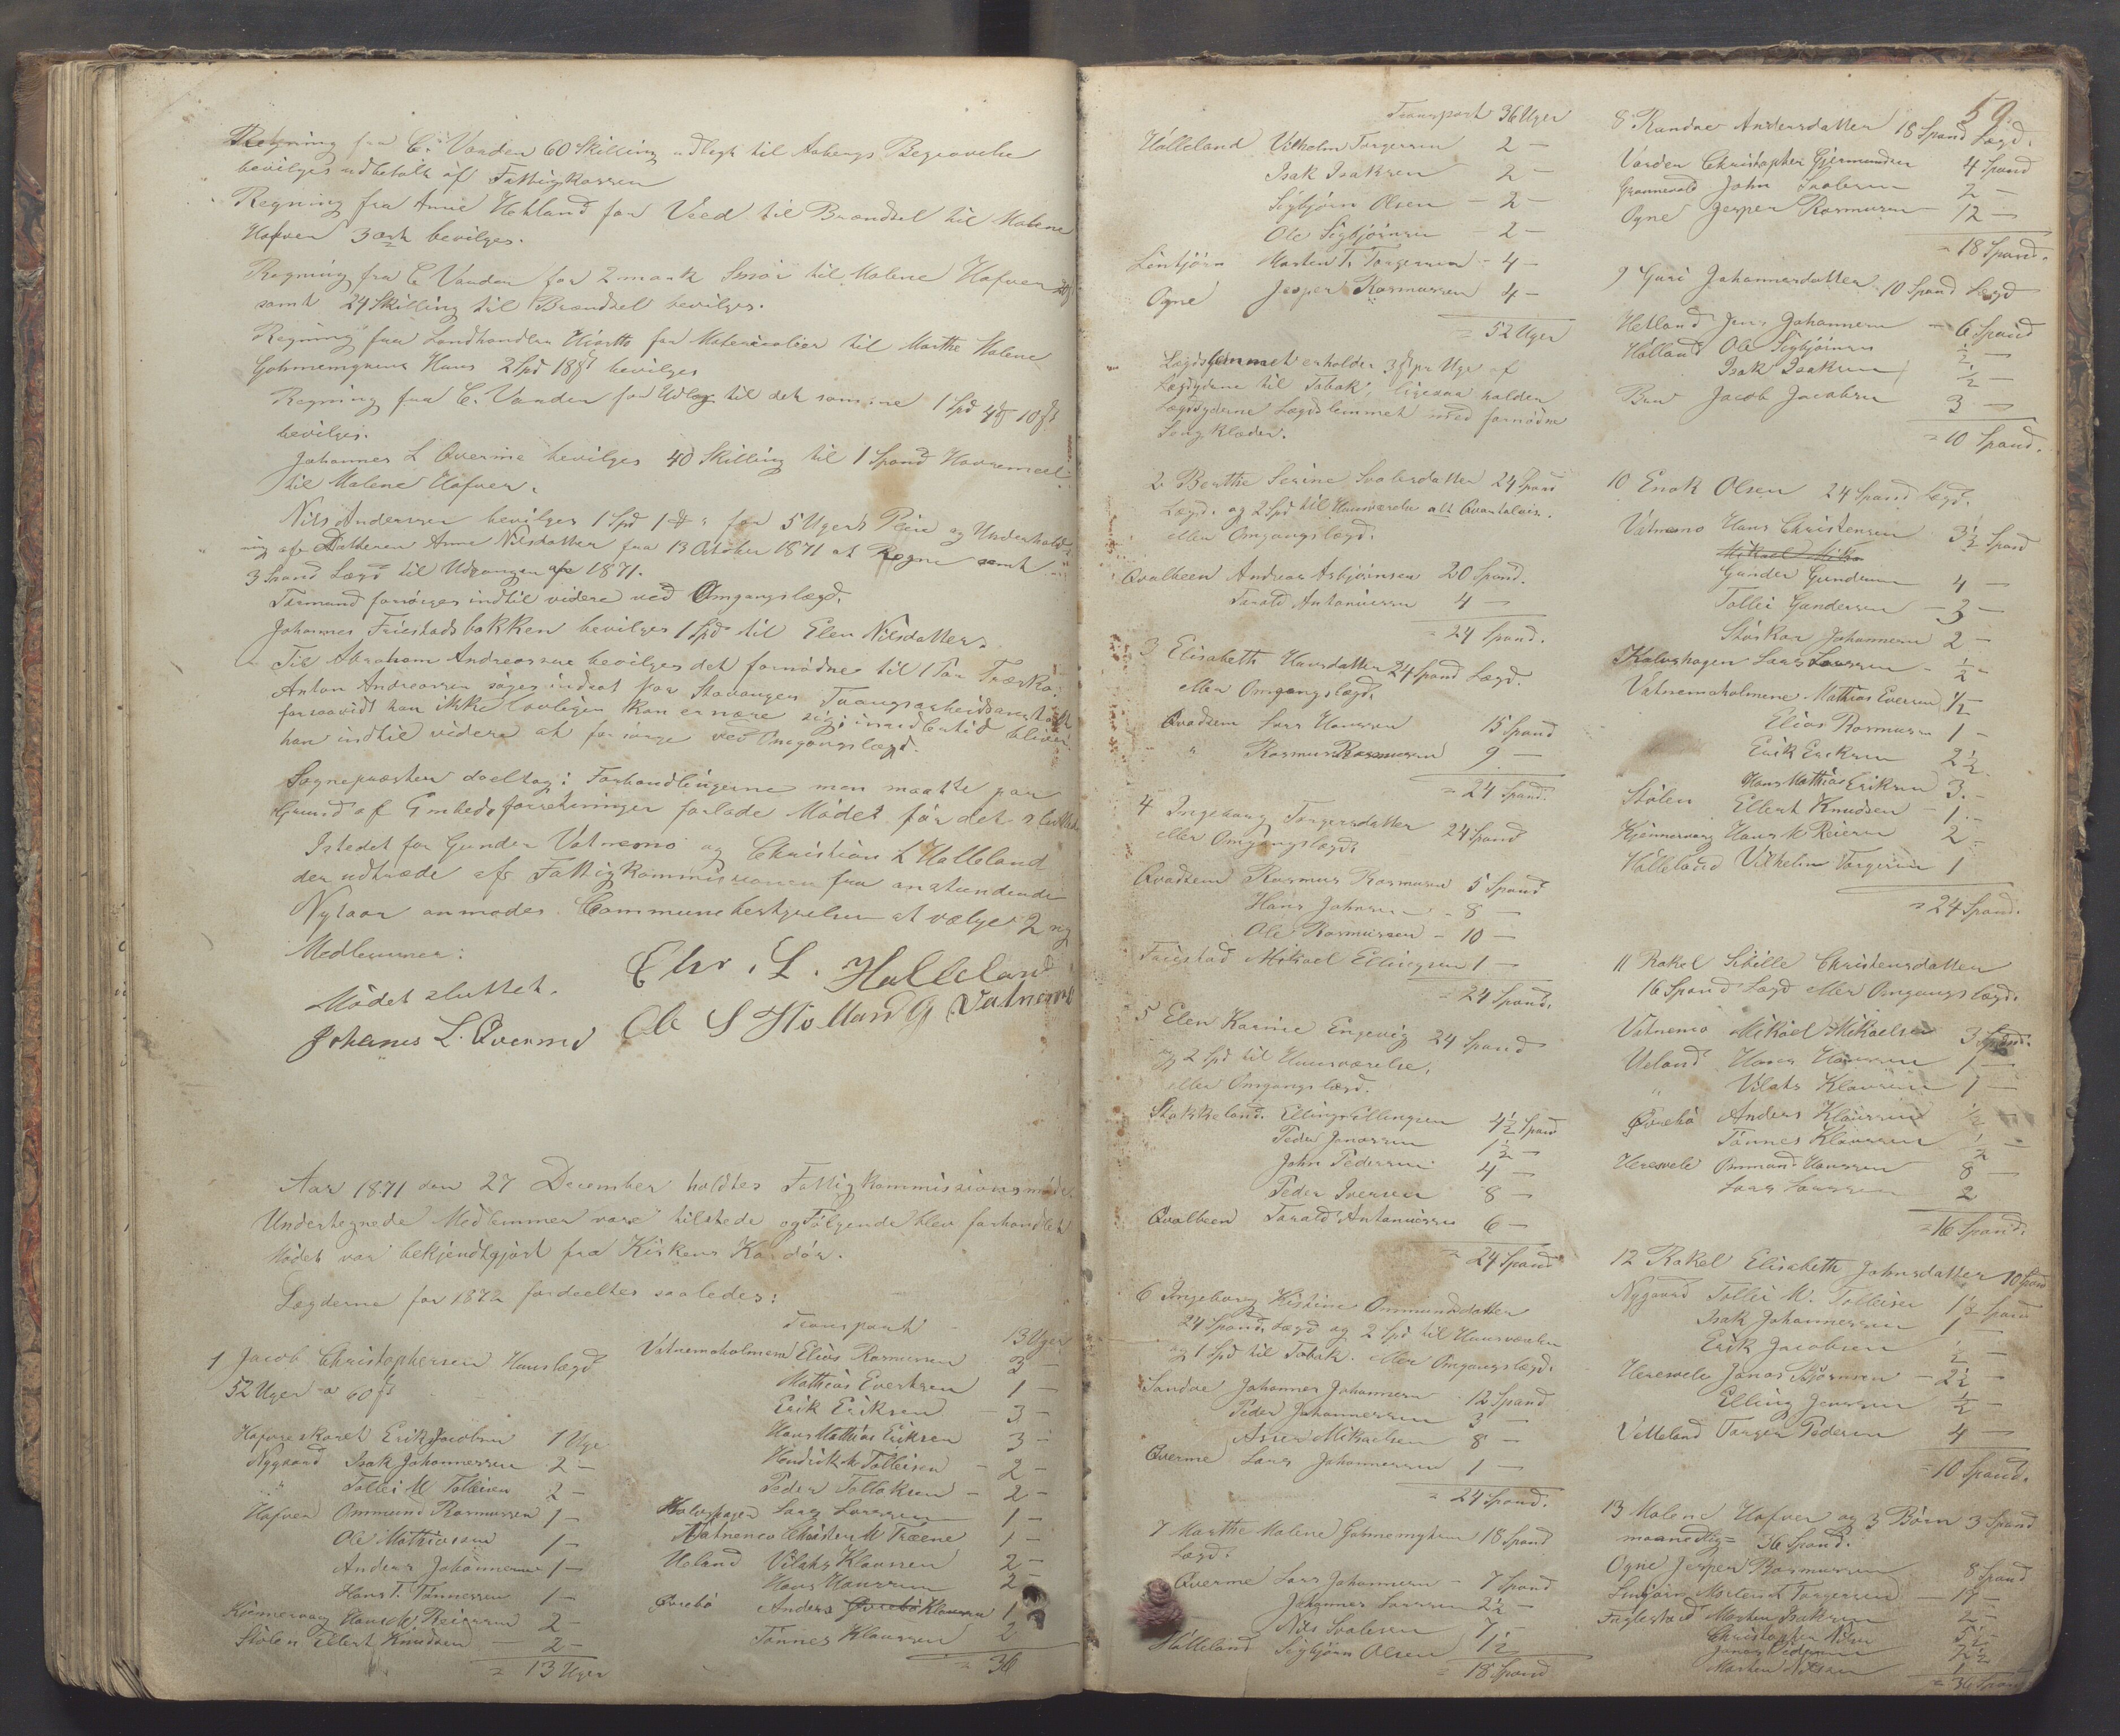 Regning fra C. Varden 60 Skilling udlagt til Aabergs Begravelse
bevilges udbetalt af Fattigkassen
Regning fra Anne Hetland for Veed til Brændsel til Malene
Hafver 3 ort bevilges.
Regning fra C Varden for 2 mark Smør til Malene Hafver
samt 24 Skilling til Brændsel bevilges.
Regning fra Landhandler Hiorth for Materialier til Marthe Malene
Gohmemyrens Huus 2 Spd 18 ß bevilges
Regning fra C. Varden for Udlæg til det samme 1 Spd 4 10 ß
bevilges.
Johannes L Qverme bevilges 40 Skilling til 1 Spand Havremeel
til Malene Hafver.
Nils Anderssen bevilges 1 Spd 1 for 5 Ugers Pleie og Underhold-
ning af Datteren Anne Nilsdatter fra 13 October 1871 at Regne samt
3 Spand Lægd til Udgangen af 1871.
Termund forsørges indtil videre ved Omgangslægd.
Johannes Friestadsbakken bevilges 1 Spd til Elen Nilsdatter.
Til Abraham Andreassen bevilges det fornødne til 1 Par Træsko.
Anton Andreassen søges indsat paa Stavanger Tvangsarbeidsanstalt
forsaavidt han ikke lovligen kan ernære sig; imidlertid bliver
han indtil videre at forsørge ved Omgangslægd.
Sognepræsten deeltog i Forhandlingerne men maatte paa
Grund af Embedsforretninger forlade Mødet før det sluttedes
Istedet for Gunder Vatnemo og Christian L Halleland
der udtræde af Fattigkommissionen fra anstundende
Nytaar anmodes Communebestyrelsen at vælge 2 ny
Medlemmer:
Mødet sluttet.
Chr. L. Halleland
Johanes L. Qverme Ole S Hølland G Vatnemo
Aar 1871 den 27 December holdtes Fattigkommissionsmøde
Undertegnede Medlemmer vare tilstede og Følgende blev forhandlet
Mødet var bekjendtgjort fra Kirkens Kordør.
Lægderne for 1872 fordeeltes saaledes:
1 Jacob Christophersen Huuslægd
52 Uger a 60 ß
Hafreskaret Erik Jacobsen 1 Uge
Nygaard Isak Johannessen 2 –
" Tollei M Tolleisen 2 –
Hafver Ommund Rasmussen 1 –
Ole Mathiassen 1 –
Anders Johannessen 1 –
Hans T. Tønnessen 1 –
Kjennervaag Hans M Reiersen 2 –
Stølen Ellert Knudsen – 2 –
= 13 Uger
Transport – 13 Uger
Vatnemoholmene Elias Rasmussen 3 –
Mathias Evertsen 1 –
Erik Eriksen – 3 –
Hans Mathias Eriksen 3 –
Hendrik M Tolleisen – 2 –
Peder Tollaksen – 2 –
Kalvshagen Lars Larssen 1 –
Vatnemo Christen M Træene 1 –
Ueland Vilats Klaussen 2 –
Hans Hanssen 2
Øvrebø Anders Øvrebø Klaussen 1
Tønnes Klaussen 2
= 36
59.
Transport 36 Uger
Hålleland Vilhelm Torgersen 2 –
Isak Isaksen 2 –
Sigbjørn Olsen – 2 –
Ole Sigbjørnsen – 2 –
Lintjørn Morten T. Torgersen – 4 –
Ogne Jesper Rasmussen 4 –
= 52 Uger
Lægdslemmet erholder 3 ß pr Uge af
Lægdyderne til Tobak, ligesaa holder
Lægdyderne Lægdslemmet med fornødne
Sengklæder.
2 Berthe Serine Svalesdatter 24 Spand
Lægd. og 2 Spd til Huusværelse alt Qvartalvis.
eller Omgangslægd.
Qvalbeen Andreas Asbjørnsen 20 Spand.
Tarald Antoniussen 4 –
= 24 Spand.
3 Elisabeth Hansdatter 24 Spand Lægd.
eller Omgangslægd.
Qvadsem Lars Hanssen 15 Spand
" Rasmus Rasmussen 9 –
= 24 Spand.
4 Ingeborg Torgersdatter 24 Spand
eller Omgangslægd.
Qvadsem Rasmus Rasmussen 5 Spand
Hans Johnsen – 8 –
Ole Rasmussen – 10 –
Friestad Mikael Ellingsen 1 –
= 24 Spand.
5 Elen Karine Engevig 24 Spand
og 2 Spd til Huusværelse,
eller Omgangslægd.
Stokkeland. Elling Ellingsen 4½ Spand
Peder Jonassen 1½ –
John Pedersen 4 –
Peder Iversen 8 –
Qvalbeen Tarald Antoniussen 6 –
= 24 Spand
6 Ingeborg Kistine Ommundsdatter
24 Spands Lægd og 2 Spd til Huusværelse
og 1 Spd til Tobak. eller Omgangslægd.
Sandve Johannes Johannessen 12 Spand
Peder Johannessen 3 –
Asser Mikaelsen 8 –
Qverme Lars Johannessen 1 –
= 24 Spand.
7 Marthe Malene Gohmemyren 18 Spand
Lægd.
Qverme Lars Johannessen – 7 Spand
Johannes Larssen 2½ –
Nils Svalesen 7 –
Hålleland Sigbjørn Olsen 1½
= 18 Spand
8 Randve Andersdatter 18 Spand Lægd.
Varden Christopher Gjermundsen 4 Spand
John Svalesen 2 –
Ogne Jesper Rasmussen 12 –
= 18 Spand.
9 Guri Johannesdatter 10 Spand Lægd
Hetland Jens Johannessen – 6 Spand
Hålland Ole Sigbjørnsen ½ –
Isak Isaksen ½ –
Bru Jacob Jacobsen 3 –
= 10 Spand.
10 Enok Olsen 24 Spand Lægd.
Vatnemo Hans Christensen 3½ Spand
Gunder Gundersen 4 –
Tollei Gundersen – 3 –
Storkar Johannessen 2 –
Kalvshagen Lars Larssen – ½ –
Vatnemoholmene Mathias Evertsen 1½
Elias Rasmussen 1 –
Erik Eriksen 2½
Hans Mathias Eriksen 3. –
Stølen Ellert Knudsen – 1. –
Kjennervaag Hans M Reiersen 2 –
Hålleland Vilhelm Torgersen 1
= 24 Spand.
11 Rakel Sibille Christensdatter
16 Spand Lægd eller Omgangslægd.
Vatnemo Mikael Mikaelsen 3 Spand.
Ueland Hans Hanssen 1 –
" Vilats Klaussen 1 –
Øvrebø Anders Klaussen ½ –
Tønnes Klaussen ½ –
Heresvele Ommund Hanssen 8 –
Lars Larssen 2
= 16 Spand.
12 Rakel Elisabeth Johnsdatter 10 Spand
Nygaard Tollei M. Tolleisen 1½ Spand
Isak Johannessen 1 –
Erik Jacobsen ½ –
Heresvele Jonas Bjørnsen – 2½ –
Elling Jenssen ½ –
Vetteland Torger Pedersen 4 –
= 10 Spand.
13 Malene Hafver og 3 Børn 3 Spand
maanedlig = 36 Spand.
Ogne Jesper Rasmussen 8 Spand
Lintjørn Morten T Torgersen – 17 –
Fuglestad Morten Isaksen 2 –
Christopher Nilsen 5½ –
Morten Nilsen 1
= 36 Spand